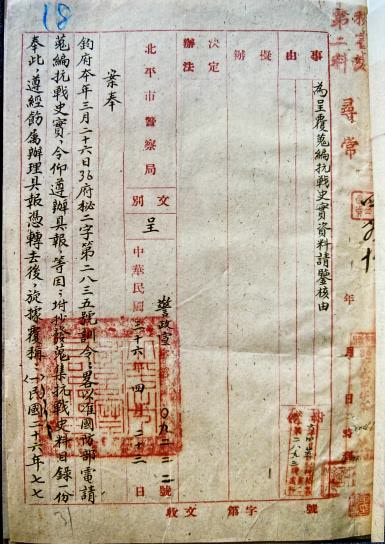 18
第二科
尋常
年
月
日
時
事由
為呈覆蒐編抗戰史實資料請鑒核由
擬辦
決定辦法
附
號
字第
收文
北平市警察局
文別
呈
中華民國三十六年四月二十二日
警政
字第
〇九二二二號
案奉
鈞府本年三月二十六日36府秘二字第二八三五號訓令：畧以准國防部電請
蒐編抗戰史實，令仰遵辦具報，等因；坿抄發蒐集抗戰史料目錄一份
奉此，遵經飭屬辦理具報憑轉去後，旋據覆稱：（一）民國二十六年七七
31